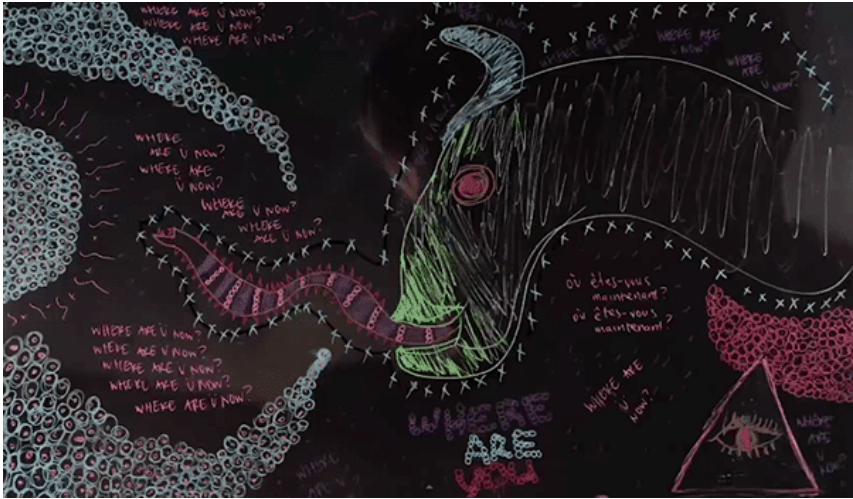 WHERE ARE U NOW?
WHERE ARE U NOW?
WHERE ARE U NOW?
WHERE ARE U
NOW?
WHERE ARE
U NOW?
WHERE
ARE
U NOW?
WHERE
ARE U NOW?
WHERE ARE
U NOW?
WHERE
ARE U NOW?
WHERE
ARE U NOW?
où êtes-vous
maintenant?
où êtes-vous
maintenant?
WHERE ARE U NOW?
WHERE ARE U NOW?
WHERE ARE U NOW?
WHERE ARE U NOW?
WHERE ARE U NOW?
WHERE ARE
U
NOW?
WHERE
ARE
YOU
WHERE
ARE
U
NOW?
WHERE
ARE U